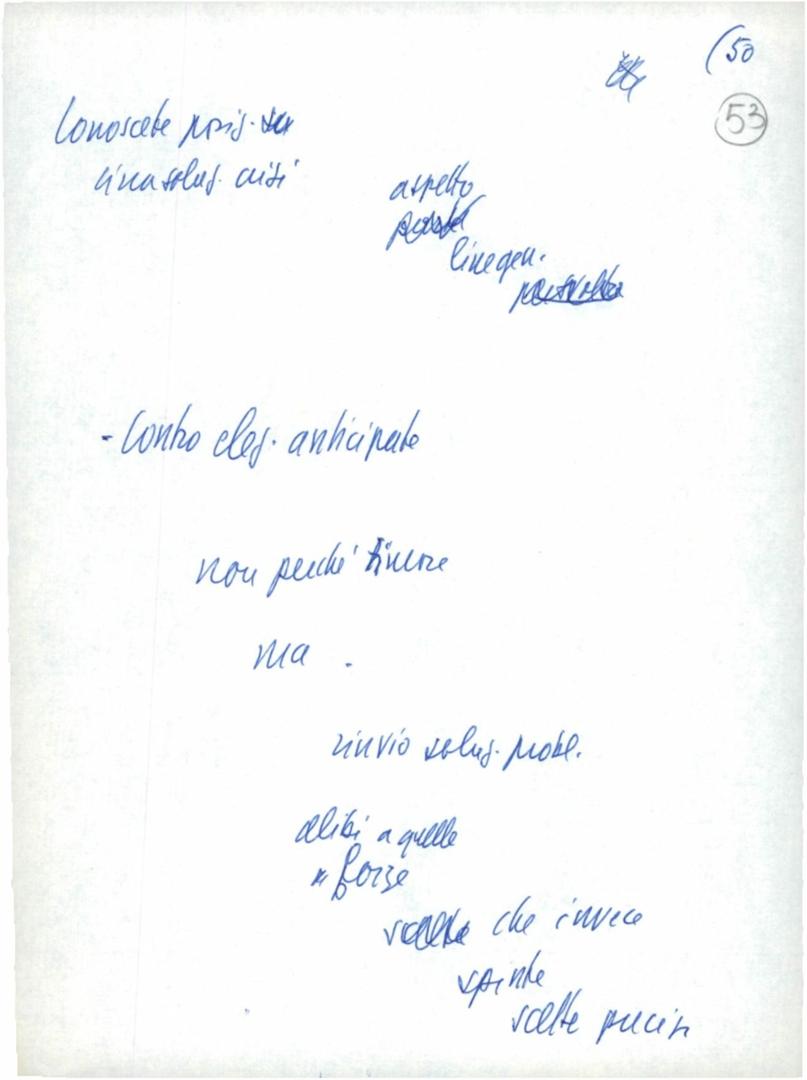 (50
53
Conoscete posiz. su
circa soluz. crisi
aspetto
linee gen.
- Contro elez. anticipate
non perché timore
ma .
rinvio soluz. probl.
alibi a quelle
forze
che invece
spinte
scelte precise